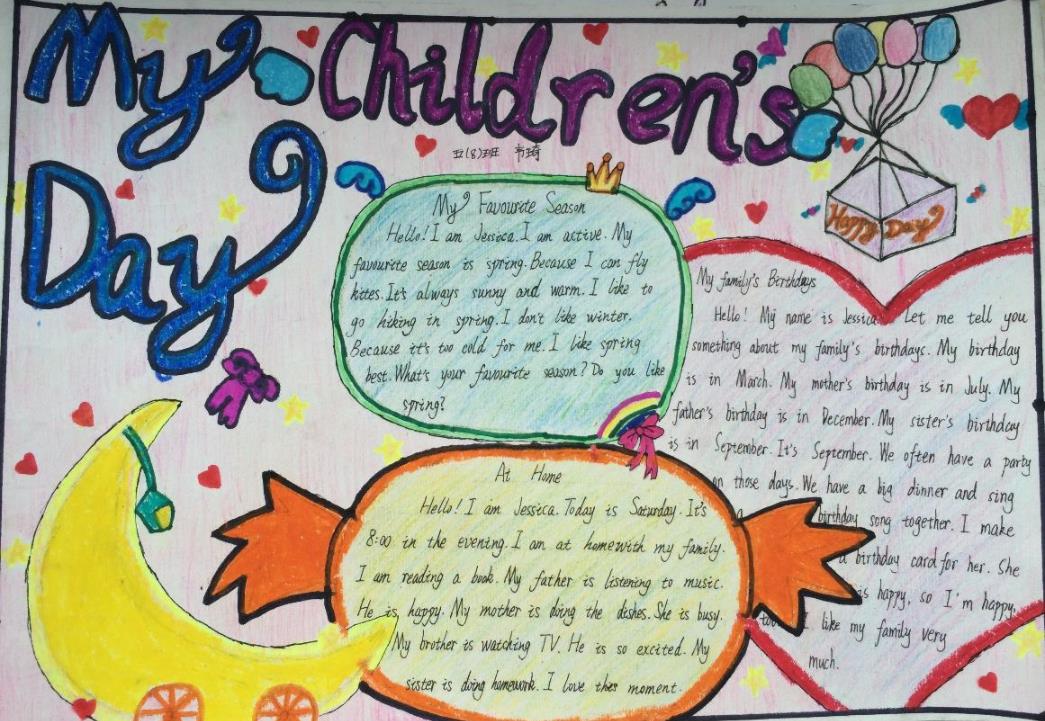 My Children's
Day
五(8)班 韦琦
My Favourite Season
Hello! I am Jessica. I am active. My
favourite season is spring. Because I can fly
kites. It's always sunny and warm. I like to
go hiking in spring. I don't like winter.
Because it's too cold for me. I like spring
best. What's your favourite season? Do you like
spring?
Happy Day
My family's Birthdays
Hello! My name is Jessica. Let me tell you
something about my family's birthdays. My birthday
is in March. My mother's birthday is in July. My
father's birthday is in December. My sister's birthday
is in September. It's September. We often have a party
on those days. We have a big dinner and sing
a birthday song together. I make
a birthday card for her. She
is happy, so I'm happy,
too. I like my family very
much.
At Home
Hello! I am Jessica. Today is Saturday. It's
8:00 in the evening. I am at homewith my family.
I am reading a book. My father is listening to music.
He is happy. My mother is doing the dishes. She is busy.
My brother is watching TV. He is so excited. My
sister is doing homework. I love thes moment.